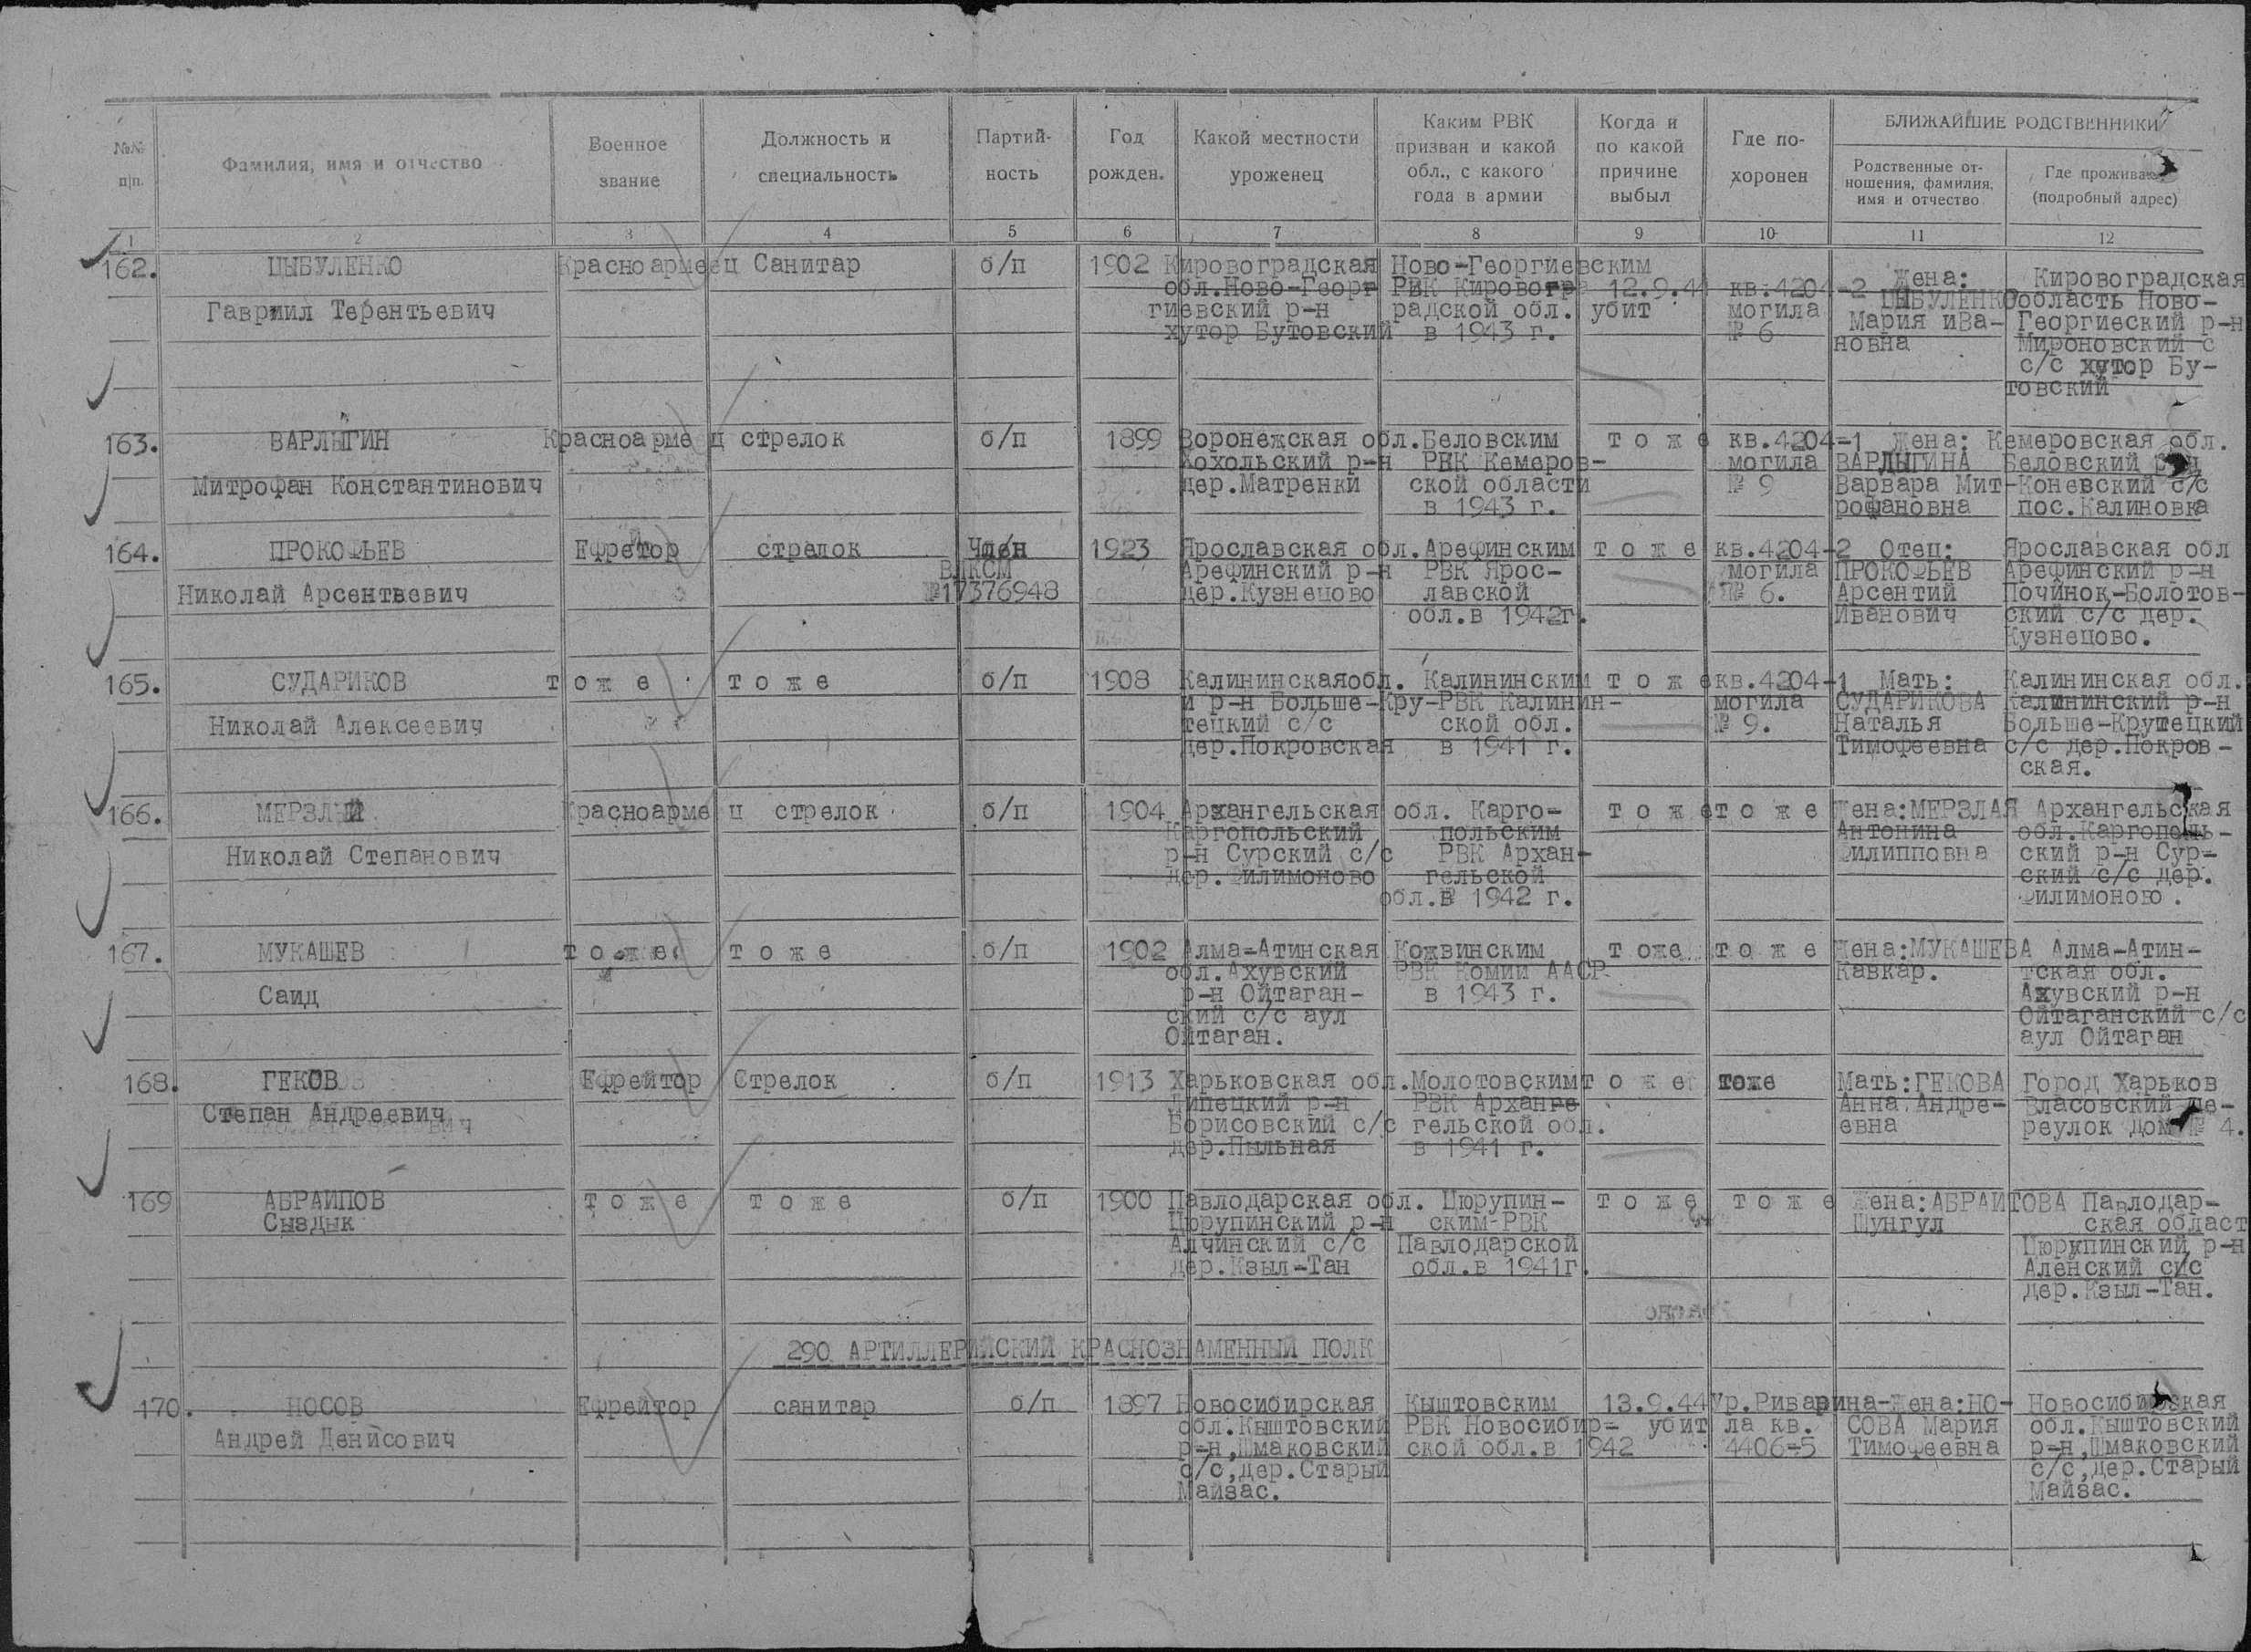 №№ п/п.
Фамилия, имя и отчество
Военное звание
Должность и специальность
Партий-
ность
Год рожден.
Какой местности уроженец
Каким РВК
призван и какой
обл., с какого
года в армии
Когда и
по какой
причине
выбыл
Где по-
хоронен
БЛИЖАЙШИЕ РОДСТВЕННИКИ
Родственные от-
ношения, фамилия,
имя и отчество
Где проживает
(подробный адрес)
1 2 3 4 5 6 7 8 9 10 11 12
162.
ЦЫБУЛЕНКО
Гавриил Терентьевич
Красноармеец
Санитар
б/п
1902
Кировоградская
обл.Ново-Георг
гиевский р-н
хутор Бутовский
Ново-Георгиевским
РВК Кировогр
радской обл.
в 1943 г.
12.9.44
убит
кв.4204-2
могила
№ 6
Жена:
ЦЫБУЛЕНКО
Мария ива-
новна
Кировоградская
область Ново-
Георгиеский р-н
Мироновский с
с/с хутор Бу-
товский
163.
ВАРЛЫГИН
Митрофан Константинович
Красноармеец
стрелок
б/п
1899
Воронежская обл.
Хохольский р-н
дер.Матренки
Беловским
РВК Кемеров-
ской области
в 1943 г.
т о ж е
кв.4204-1
могила
№ 9
Жена:
ВАРЛЫГИНА
Варвара Мит-
рофановна
Кемеровская обл.
Беловский р-н
Коневский с/с
пос.Калиновка
164.
ПРОКОФЬЕВ
Николай Арсентьевич
Ефрейтор
стрелок
Член
ВЛКСМ
№17376948
1923
Ярославская обл.
Арефинский р-н
дер.Кузнецово
Арефинским
РВК Ярос-
лавской
обл.в 1942г.
т о ж е
кв.4204-2
могила
№ 6.
Отец:
ПРОКОФЬЕВ
Арсентий
Иванович
Ярославская обл
Арефинский р-н
Починок-Болотов-
ский с/с дер.
Кузнецово.
165.
СУДАРИКОВ
Николай Алексеевич
т о ж е
т о ж е
б/п
1908
Калининскаяобл.
и р-н Больше-Кру-
тецкий с/с
дер.Покровская
Калининским
РВК Калинин-
ской обл.
в 1941 г.
т о ж е
кв.4204-1
могила
№ 9.
Мать:
СУДАРИКОВА
Наталья
Тимофеевна
Калининская обл.
Калининский р-н
Больше-Крутецкий
с/с дер.Покров-
ская.
166.
МЕРЗЛЫЙ
Николай Степанович
Красноармеец
стрелок
б/п
1904
Архангельская обл.
Каргопольский
р-н Сурский с/с
дер.Филимоново
Карго-
польским
РВК Архан-
гельской
обл.в 1942 г.
т о ж е
т о ж е
Жена:МЕРЗЛАЯ
Антонина
Филипповна
Архангельская
обл.Каргополь-
ский р-н Сур-
ский с/с дер.
Филимоново.
167.
МУКАШЕВ
Саид
т о ж е
т о ж е
б/п
1902
Алма-Атинская
обл.Ахувский
р-н Ойтаган-
ский с/с аул
Ойтаган.
Кожвинским
РВК Комии ААСР
в 1943 г.
т оже
т о ж е
Жена:МУКАШЕВА
Кавкар.
Алма-Атин-
тская обл.
Ахувский р-н
Ойтаганский с/с
аул Ойтаган
168.
ГЕКОВ
Степан Андреевич
Ефрейтор
Стрелок
б/п
1913
Харьковская обл.
Липецкий р-н
Борисовский с/с
дер.Пыльная
Молотовским
РВК Арханге
гельской обл.
в 1941 г.
т о ж е
тоже
Мать:ГЕКОВА
Анна Андре-
евна
Город Харьков
Власовский пе-
реулок дом № 4.
169
АБРАИПОВ
Сыздык
т о ж е
т о ж е
б/п
1900
Павлодарская обл.
Цюрупинский р-н
Алчинский с/с
дер.Кзыл-Тан
Цюрупин-
ским-РВК
Павлодарской
обл.в 1941г.
т о ж е
т о ж е
Жена:АБРАИТОВА
Шунгул
Павлодар-
ская област
Цюрупинский р-н
Аленский с/с
дер.Кзыл-Тан.
290 АРТИЛЛЕРИЙСКИЙ КРАСНОЗНАМЕННЫЙ ПОЛК
170.
НОСОВ
Андрей Денисович
Ефрейтор
санитар
б/п
1897
Новосибирская
обл.Кыштовский
р-н,Шмаковский
с/с,дер.Старый
Майзас.
Кыштовским
РВК Новосибир-
ской обл.в 1942
13.9.44
убит
Ур.Риварина-
ла кв.
4406-5
Жена:НО-
СОВА Мария
Тимофеевна
Новосибирская
обл.Кыштовский
р-н,Шмаковский
с/с,дер.Старый
Майзас.